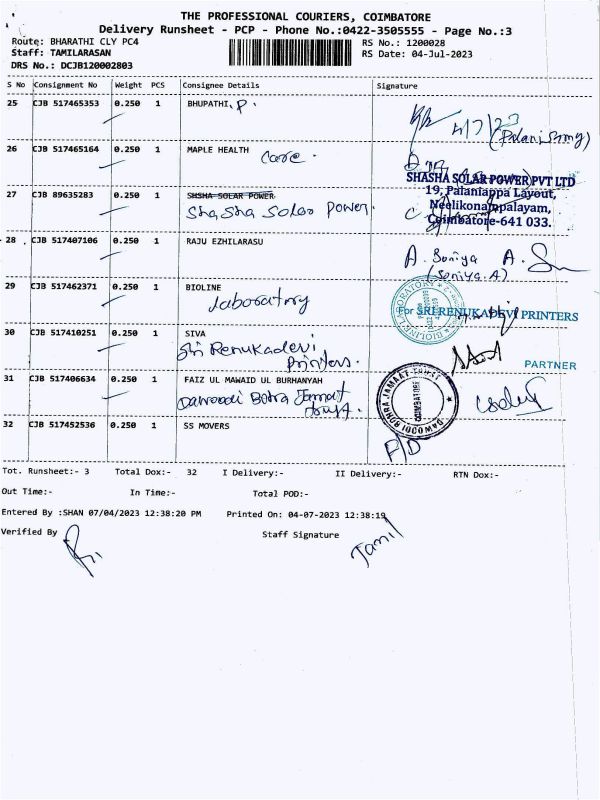 THE PROFESSIONAL COURIERS, COIMBATORE
Delivery Runsheet - PCP - Phone No.:0422-3505555 - Page No.:3
Route: BHARATHI CLY PC4 RS No.: 1200028
Staff: TAMILARASAN RS Date: 04-Jul-2023
DRS No.: DCJB120002803
S No Consignment No Weight PCS Consignee Details Signature
25 CJB 517465353 0.250 1 BHUPATHI. P. 4/7/23
(Palanisamy)
26 CJB 517465164 0.250 1 MAPLE HEALTH
care.
SHASHA SOLAR POWER PVT LTD
19, Palaniappa Layout,
Neelikonampalayam,
Coimbatore-641 033.
27 CJB 89635283 0.250 1 SHSHA SOLAR POWER
Shasha Solar Power.
28 CJB 517407106 0.250 1 RAJU EZHILARASU A. Soniya
(Soniya.A)
29 CJB 517462371 0.250 1 BIOLINE
laboratory
For SRI RENUKADEVI PRINTERS
30 CJB 517410251 0.250 1 SIVA
Sri Renukadevi
Printers.
PARTNER
31 CJB 517406634 0.250 1 FAIZ UL MAWAID UL BURHANYAH
Dawoodi Bohra Jamat
DAWOODI BOHRA JAMAAT TRUST
COIMBATORE
32 CJB 517452536 0.250 1 SS MOVERS
P/D
Tot. Runsheet:- 3 Total Dox:- 32 I Delivery:- II Delivery:- RTN Dox:-
Out Time:- In Time:- Total POD:-
Entered By :SHAN 07/04/2023 12:38:20 PM Printed On: 04-07-2023 12:38:19
Verified By Staff Signature
Tamil